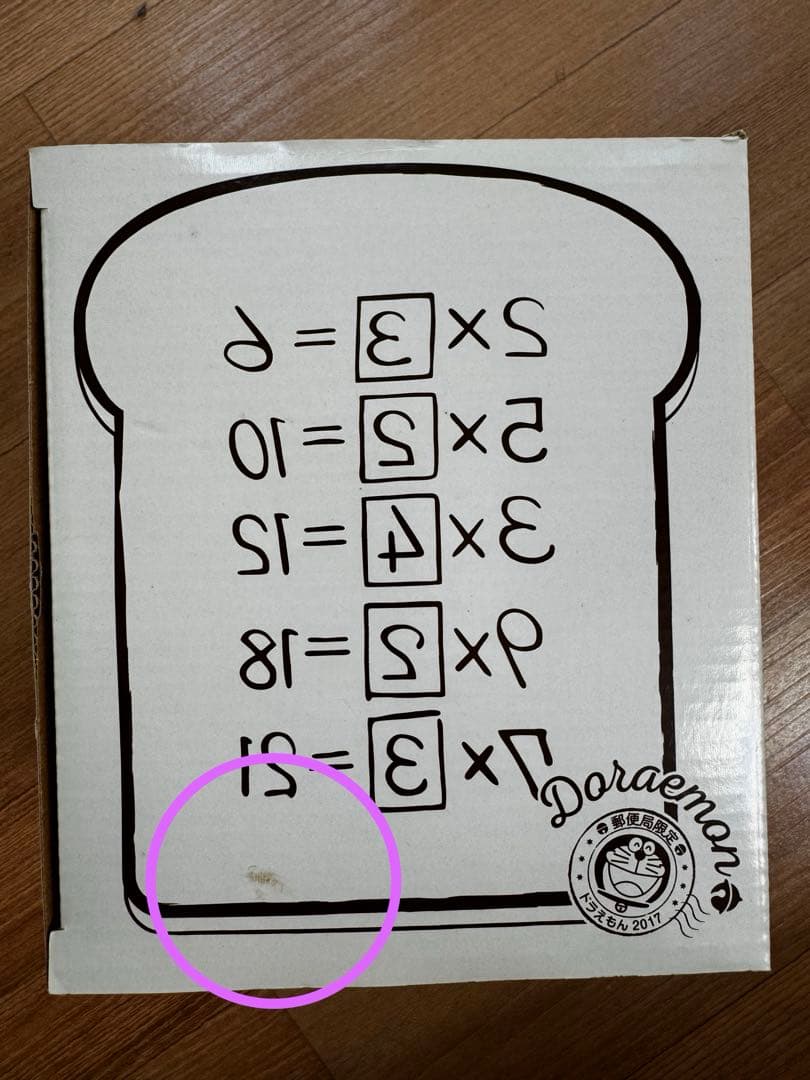 2×3=6
5×2=10
3×4=12
9×2=18
7×3=21
Doraemon
郵便局限定
ドラえもん 2017